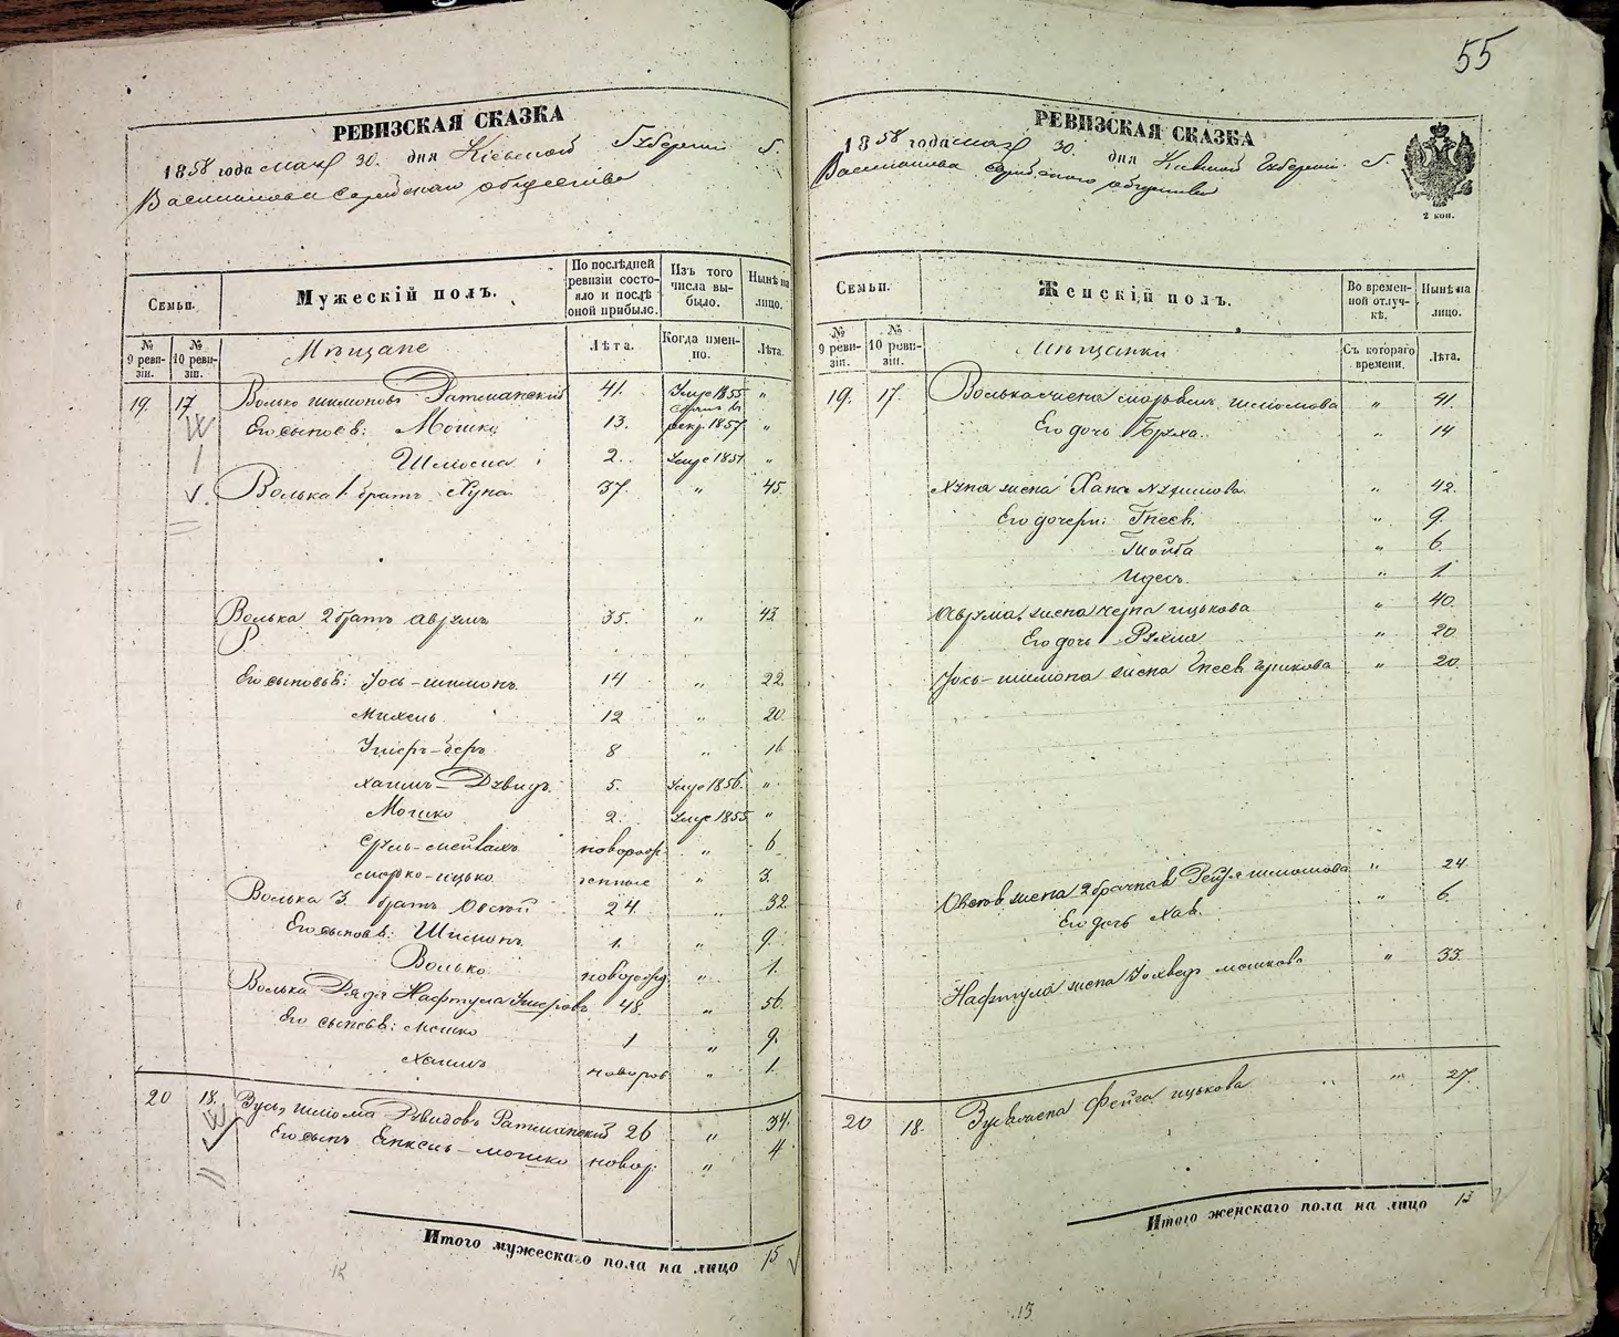 55
РЕВИЗСКАЯ СКАЗКА
1858 года мая 30. дня Кіевской Губерніи Г.
Василькова еврейскаго общества
Семьи.
Мужескій полъ.
По послѣдней ревизіи состояло и послѣ оной прибыло.
Изъ того числа выбыло.
Нынѣ на лицо.
№ 9 ревизіи.
№ 10 ревизіи.
Мѣщане
Лѣта.
Когда именно.
Лѣта.
19. 17 Волько Шимоновъ Ратманскій 41. Умре 1855 "
Его сыновья: Мошко 13. рекр. 1857 "
Шлiома 2. Умре 1851 "
Волька 1. братъ Хуна 37. " 45.
Волька 2 братъ Аврумъ 35. " 43
Его сыновья: Іось-Шимонъ 14 " 22
Михель 12 " 20
Ушеръ-Беръ 8 " 16
Хаимъ-Дувидъ 5. Умре 1856. "
Мошко 2. Умре 1855 "
Сруль- новорож- " 6
Морко-Ицько денные " 3.
Волька 3. братъ Овсей 24. " 32.
Его сыновья: Шимонъ 1. " 9.
Волько новорожд. " 1.
Волька Дядя Нафтула Ушеровъ 48. " 56.
Его сыновья: Мошко 1 " 9.
Хаимъ новорож " 1.
20 18. Зусь Шлiома Дувидовъ Ратманскій 26 " 34.
Его сынъ -Мошко новор. " 4
Итого мужескаго пола на лицо 15
РЕВИЗСКАЯ СКАЗКА
1858 года мая 30. дня Кіевской Губерніи. Г.
Василькова еврейскаго общества
2 коп.
Семьи.
Женскій полъ.
Во временной отлучкѣ.
Нынѣ на лицо.
№ 9 ревизіи.
№ 10 ревизіи.
Мѣщанки
Съ котораго времени.
Лѣта.
19. 17. Волька жена Шлiомова " 41.
Его дочь Бруха. " 14
Хуна жена Хана Нухимова " 42.
Его дочери: Гнеся. " 9.
Тойба " 6.
Идесъ. " 1.
Аврума жена Черна Ицькова " 40.
Его дочь Рухля " 20
Іось-Шимона жена Гнеся " 20.
Овсея жена 2 брачная Рейзя " 24
Его дочь Хая. " 6.
Нафтула жена Іохведъ Мошкова " 33.
20 18. Зуся жена Фейга Ицькова " 27.
Итого женскаго пола на лицо 13
13